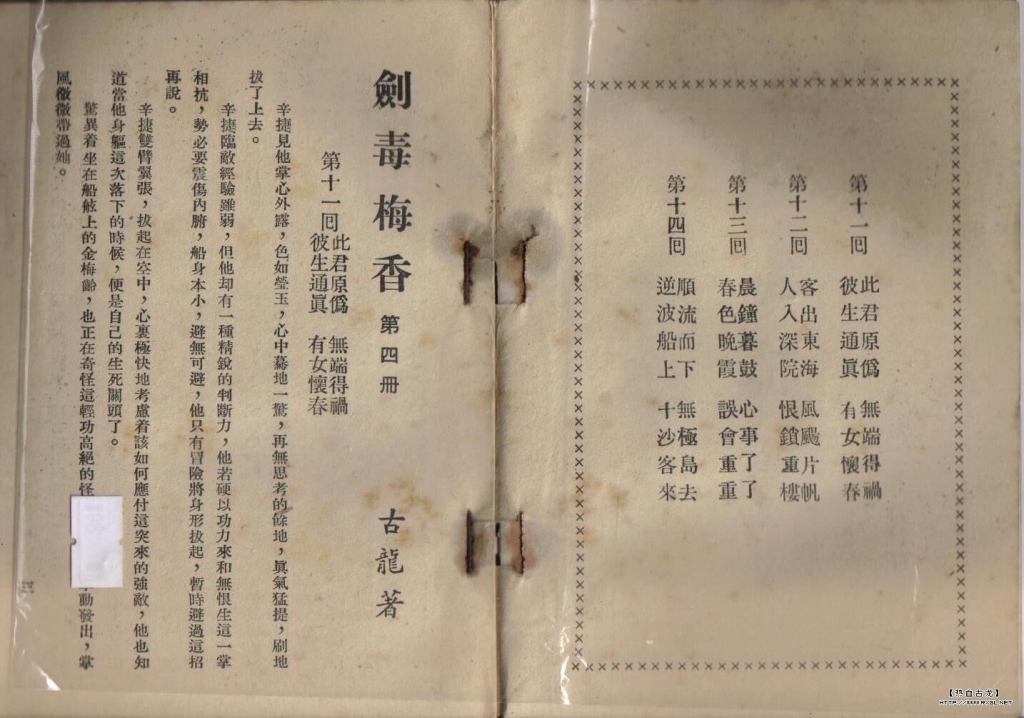 第十一回
此君原僞 無端得禍
彼生通眞 有女懷春
第十二回
客出東海 風颺片帆
人入深院 恨鎖重樓
第十三回
晨鐘暮鼓 心事了了
春色晚霞 誤會重重
第十四回
順流而下 無極島去
逆波船上 十沙客來
劍毒梅香 第四冊 古龍著
第十一回
此君原僞 無端得禍
彼生通眞 有女懷春
辛捷見他掌心外露，色如瑩玉，心中驀地一驚，再無思考的餘地，眞氣猛提，刷地
拔了上去。
辛捷臨敵經驗雖弱，但他却有一種精銳的判斷力，他若硬以功力來和無恨生這一掌
相抗，勢必要震傷內腑，船身本小，避無可避，他只有冒險將身形拔起，暫時避過這招
再說。
辛捷雙臂翼張，拔起在空中，心裏極快地考慮着該如何應付這突來的強敵，他也知
道當他身軀這次落下的時候，便是自己的生死關頭了。
驚異着坐在船舷上的金梅齡，也正在奇怪這輕功高絕的怪 動發出，掌
風微微帶過她。
【热血古龙】
HTTP://WWW.RXGL.NET